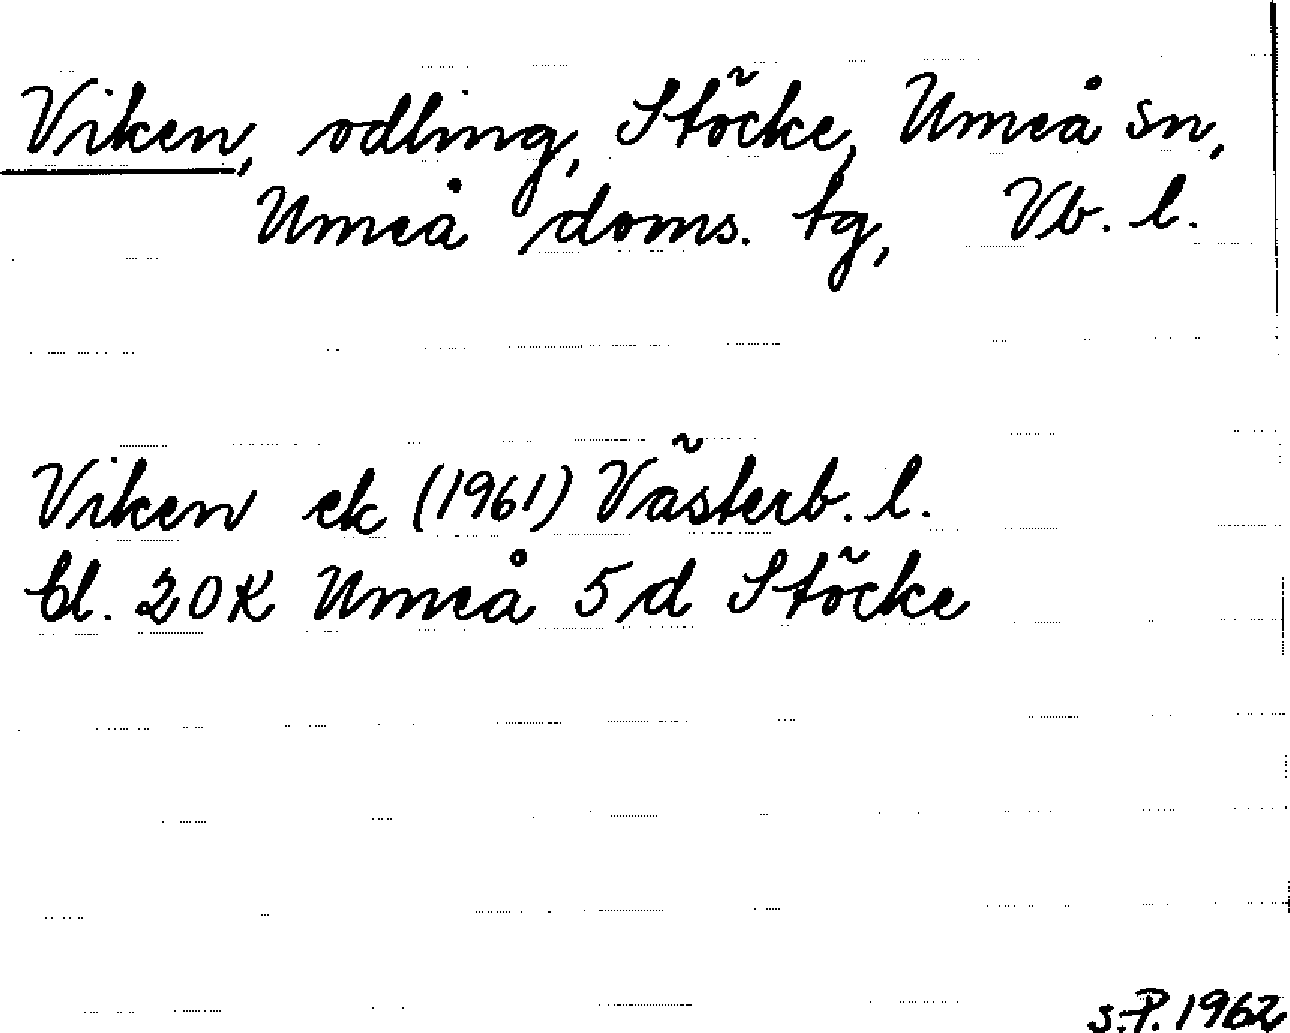 Viken, odling, Stöcke, Umeå sn,
Umeå doms. tg, Vb. l.
Viken ek (1961) Västerb. l.
bl. 20K Umeå 5d Stöcke
S.P. 1962